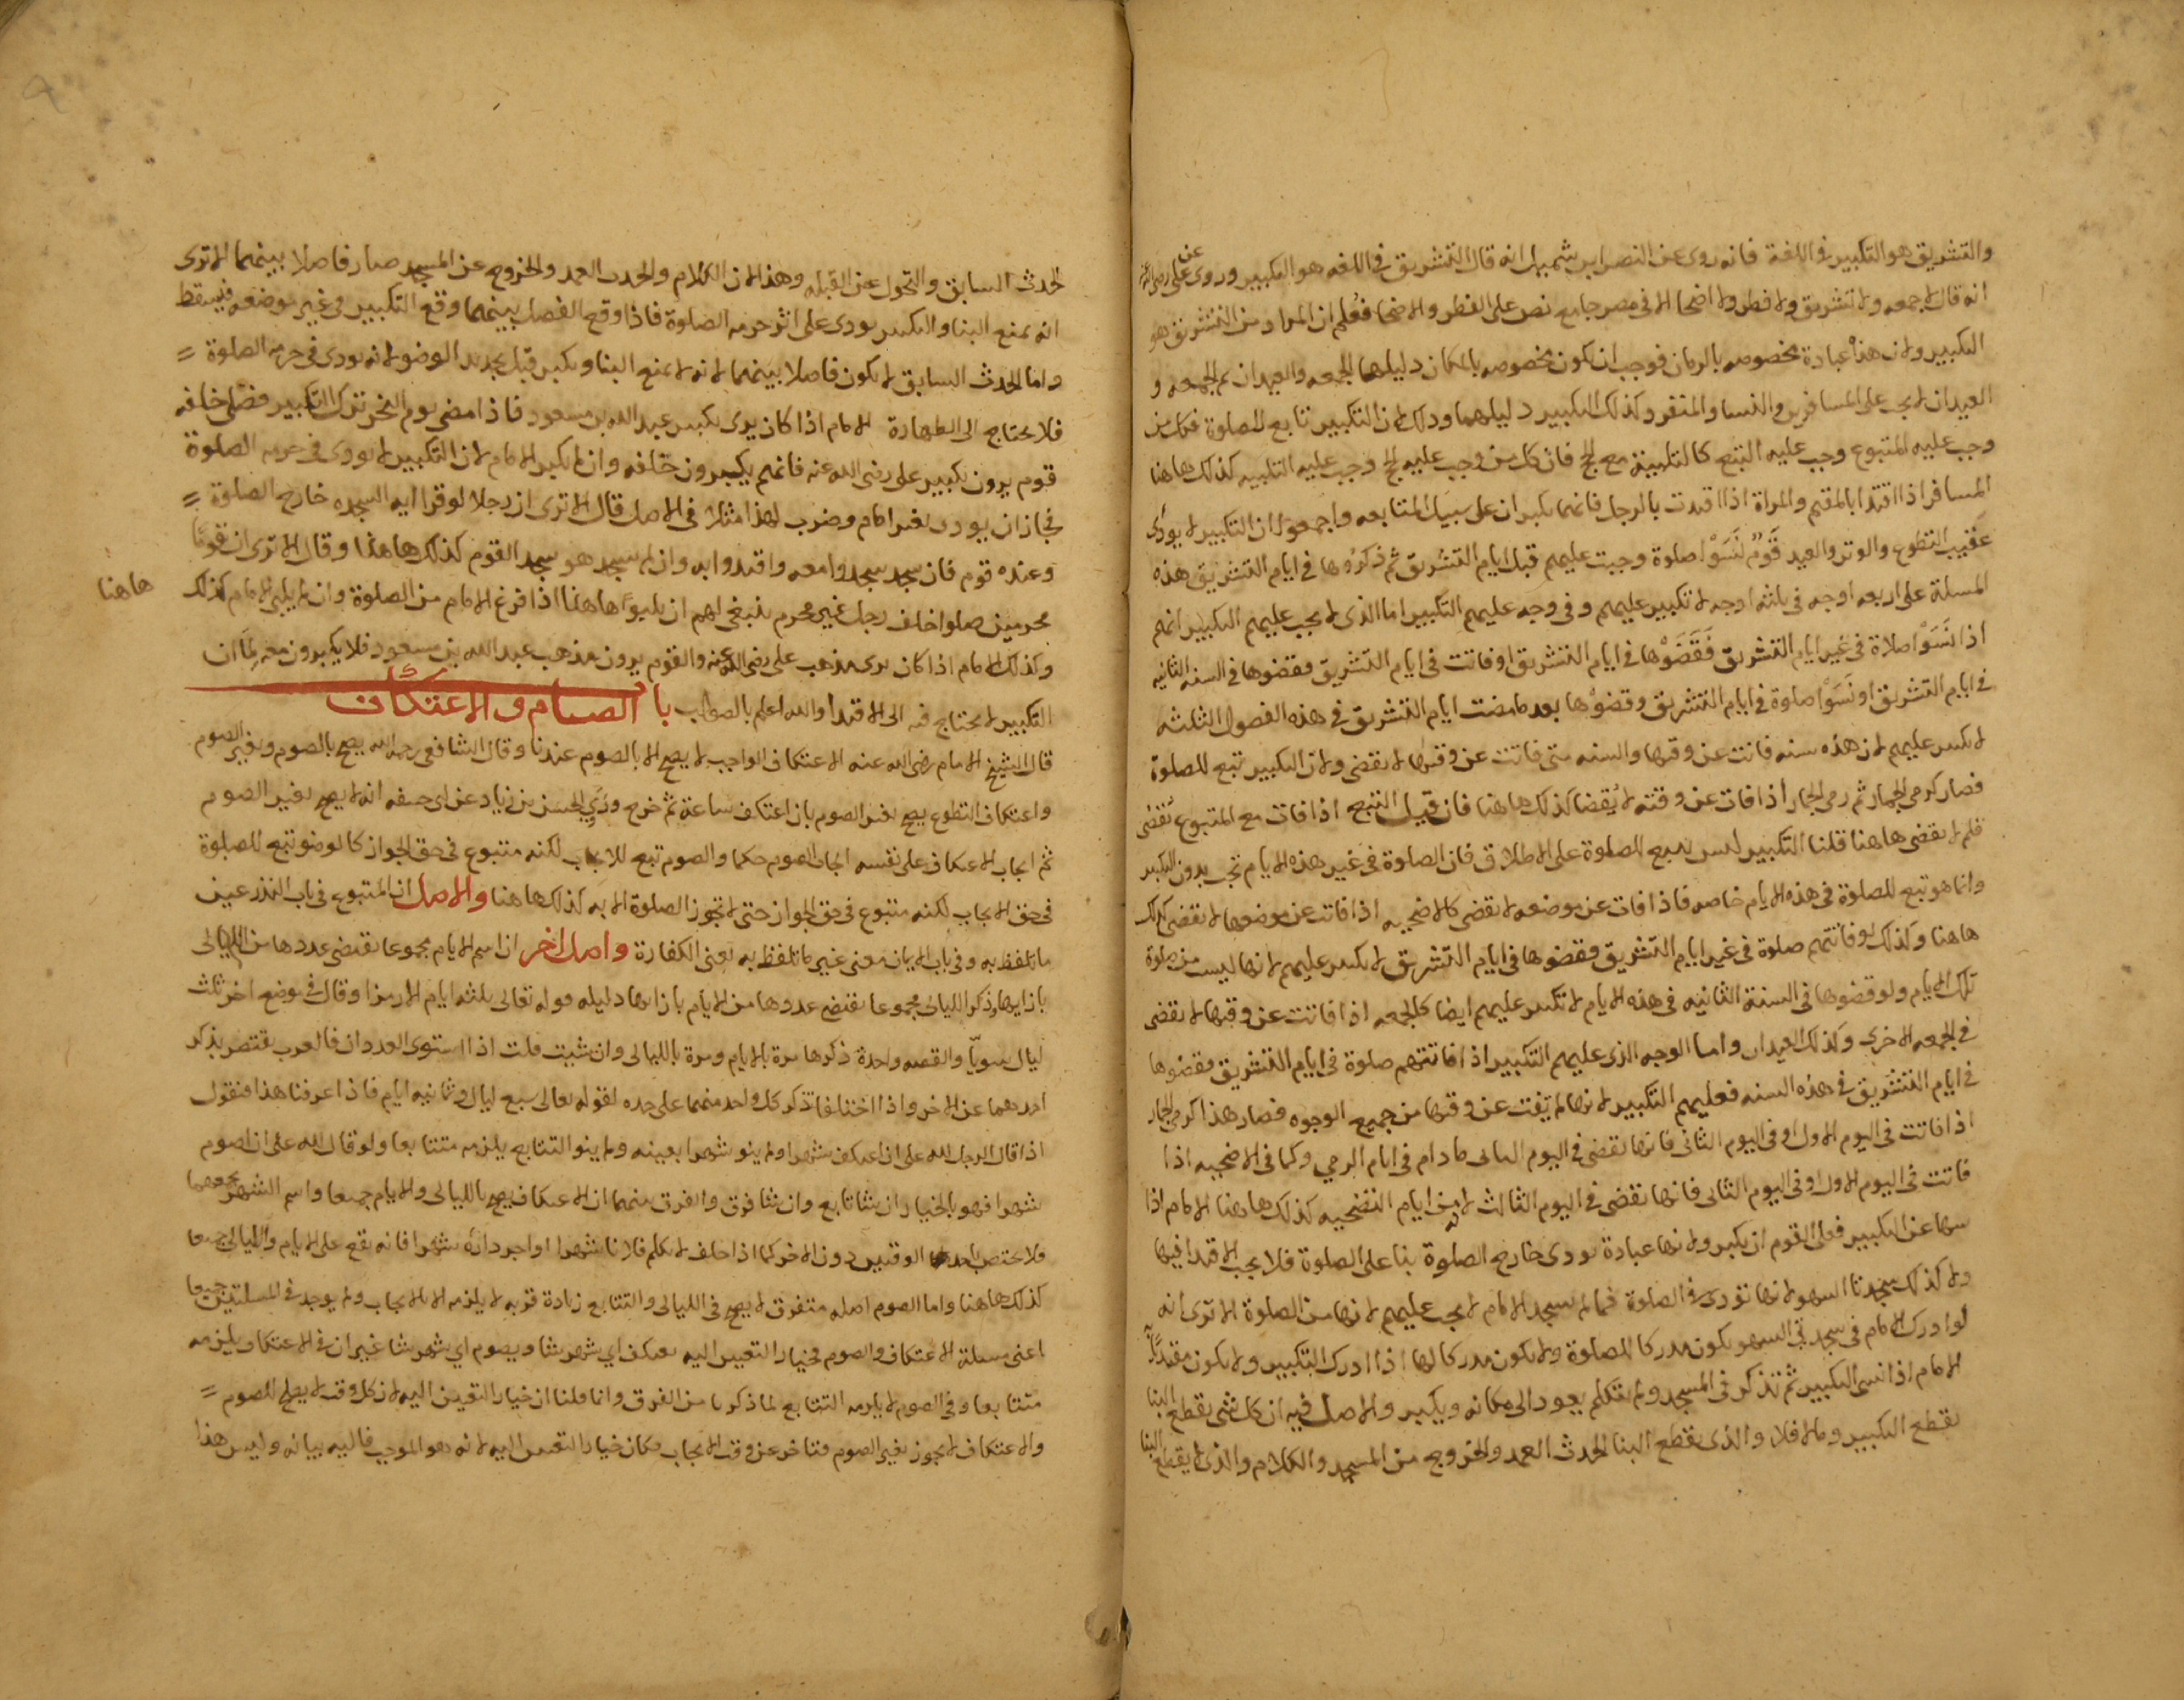 والتشريق هو التكبير في اللغة فانه روى عن النضر ابن شميل انه قال التشريق في اللغه هو التكبير وروى عن على رضي الله عنه
انه قال لا جمعه ولا تشريق ولا فطر ولا اضحا الا في مصر جامع نص على الفطر والاضحا فعلم ان المراد من التشريق هو
التكبير ولان هذه عبادة مخصوصه بالزمان فوجب ان تكون مخصوصه بالمكان دليلها الجمعه والعيدان ثم الجمعه و
العيدان لا يجب على المسافرين والنسا والمنفرد كذلك التكبير دليلهما وذلك لان التكبير تابع للصلوة فكل من
وجب عليه المتبوع وجب عليه التبع كالتلبية مع الحج فان كل من وجب عليه الحج وجب عليه التلبيه كذلك هاهنا
المسافر اذا اقتدا بالمقيم والمراة اذا اقتدت بالرجل فانهما يكبران على سبيل المتابعه واجمعوا ان التكبير لا يودى
عقيب التطوع والوتر والعيد قوم نسوا صلوة وجبت عليهم قبل ايام التشريق ثم ذكروها في ايام التشريق هذه
المسلة على اربعه اوجه في ثلثه اوجه لا تكبير عليهم وفي وجه عليهم التكبير اما الذي لا يجب عليهم التكبير انهم
اذا نسوا صلاة في غير ايام التشريق فقضوها في ايام التشريق او فاتت في ايام التشريق فقضوها في السنه الثانيه
في ايام التشريق او نسوا صلوة في ايام التشريق وقضوها بعد ما مضت ايام التشريق في هذه الفصول الثلثه
لا تكبير عليهم لان هذه سنه فاتت عن وقتها والسنه متى فاتت عن وقتها لا تقضى ولان التكبير تبع للصلوة
فصار كرمي الجمار ثم رمي الجمار اذا فات عن وقته لا يقضا كذلك هاهنا فان قيل التبع اذا فات مع المتبوع يقضى
فلم لا يقضى هاهنا قلنا التكبير ليس بتبع للصلوة على الاطلاق فان الصلوة في غير هذه الايام تجب بدون التكبير
وانما هو تبع للصلوة في هذه الايام خاصه فاذا فات عن موضعه لا تقضى كالاضحيه اذا فاتت عن موضعها لا تقضى كذلك
هاهنا وكذلك لو فاتتهم صلوة في غير ايام التشريق فقضوها في ايام التشريق لا تكبير عليهم لانها ليست من صلوة
تلك الايام ولو قضوها في السنة الثانيه في هذه الايام لا تكبير عليهم ايضا كالجمعه اذا فاتت عن وقتها لا تقضى
في الجمعه الاخرى وكذلك العيدان واما الوجه الذى عليهم التكبير اذا فاتتهم صلوة في ايام التشريق فقضوها
في ايام التشريق في هذه السنه فعليهم التكبير لانها لم تفت عن وقتها من جميع الوجوه فصار هذا كرمي الجمار
اذا فاتت في اليوم الاول او في اليوم الثانى فانها تقضى في اليوم الثانى ما دام في ايام الرمي وكما في الاضحيه اذا
فاتت في اليوم الاول او في اليوم الثانى فانها تقضى في اليوم الثالث لانه من ايام التضحيه كذلك هاهنا الامام اذا
سها عن التكبير فعلى القوم ان يكبروا لانها عبادة تودى خارج الصلوة بنا على الصلوة فلا يجب الاقتدا فيها
ولا كذلك سجدتا السهو لانها تودى في الصلوة فما لم يسجد الامام لا يجب عليهم لانها من الصلوة الا ترى انه
لو ادرك الامام في سجدتي السهو يكون مدركا للصلوة ولا يكون مدركا لها اذا ادرك التكبير ولا يكون مقتديا به
الامام اذا نسى التكبير ثم تذكر في المسجد ولم يتكلم يعود الى مكانه ويكبر والاصل فيه ان كل شى يقطع البنا
يقطع التكبير وما لا فلا والذى يقطع البنا الحدث العمد والخروج من المسجد والكلام والذى لا يقطع البنا
الحدث السابق والتحول عن القبله وهذا لان الكلام والحدث العمد والخروج عن المسجد صار فاصلا بينهما الا ترى
انه يمنع البنا والتكبير يودى على اثر حرمه الصلوة فاذا وقع الفصل بينهما وقع التكبير في غير موضعه فيسقط
واما الحدث السابق لا يكون فاصلا بينهما لانه لا يمنع البنا ويكبر قبل تجديد الوضو لانه يودى في حرمه الصلوة =
فلا يحتاج الى الطهارة الامام اذا كان يرى تكبير عبد الله بن مسعود فاذا مضى يوم النحر ترك التكبير فصلى خلفه
قوم يرون تكبير على رضى الله عنه فانهم يكبرون خلفه وان لم يكبر الامام لان التكبير لا يودى في حرمه الصلوة
فجاز ان يودى بغير امام وضرب لهذا مثلا في الاصل قال الا ترى ان رجلا لو قرا ايه السجده خارج الصلوة =
وعنده قوم فان سجد سجدوا معه واقتدوا به وان لم يسجد هو سجد القوم كذلك هاهنا وقال الا ترى ان قوما
محرمين صلوا خلف رجل غير محرم ينبغي لهم ان يلبوا هاهنا اذا فرغ الامام من الصلوة وان لم يلبى الامام كذلك هاهنا
وكذلك الامام اذا كان يرى مذهب على رضى الله عنه والقوم يرون مذهب عبد الله بن مسعود فلا يكبرون معه لما ان
التكبير لا يحتاج فيه الى الاقتدا والله اعلم بالصواب باب الصيام والاعتكاف
قال الشيخ الامام رضى الله عنه الاعتكاف الواجب لا يصح الا بالصوم عندنا وقال الشافعى رحمه الله يصح بالصوم وبغير الصوم
واعتكاف التطوع يصح بغير الصوم بان اعتكف ساعة ثم خرج وروى الحسن بن زياد عن ابى حنيفه انه لا يصح بغير الصوم
ثم ايجاب الاعتكاف على نفسه ايجاب الصوم حكما والصوم تبع للايجاب لكنه متبوع في حق الجواز كالوضو تبع للصلوة
في حق الايجاب لكنه متبوع في حق الجواز حتى لا تجوز الصلوة الا به كذلك هاهنا والاصل ان المتبوع في باب النذر عين
ما تلفظ به وفي باب الايمان معنى غير ما تلفظ به يعنى الكفارة واصل اخر ان اسم الايام مجموعا يقتضى عددها من الليالى
بازايها وذكر الليالى مجموعا يقتضى عددها من الايام بازايها دليله قوله تعالى ثلثه ايام الا رمزا وقال في موضع اخر ثلث
ليال سويا والقصه واحدة ذكرها مرة بالايام ومرة بالليالى وان شيت قلت اذا استوى العددان فالعرب يقتصر بذكر
احدهما عن الاخر واذا اختلفا تذكر كل واحد منهما على حده لقوله تعالى سبع ليال وثمانيه ايام فاذا عرفنا هذا فنقول
اذا قال الرجل لله على ان اعتكف شهرا ولم ينو شهرا بعينه ولم ينو التتابع يلزمه متتابعا ولو قال لله على ان اصوم
شهرا فهو بالخيار ان شا تابع وان شا فرق والفرق بينهما ان الاعتكاف يصح بالليالى والايام جميعا واسم الشهر يجمعهما
فلا يختص باحد الوقتين دون الاخر كما اذا حلف لا يكلم فلانا شهرا او اجر داره شهرا فانه يقع على الايام والليالى جميعا
كذلك هاهنا واما الصوم اصله متفرق لا يصح في الليالى والتتابع زيادة قربه لا يلزمه الا بالايجاب ولم يوجد في المسلتين جميعا
اعنى مسلة الاعتكاف والصوم فخيار التعيين اليه يعتكف اي شهر شا ويصوم اي شهر شا غير ان في الاعتكاف يلزمه
متتابعا وفي الصوم لا يلزمه التتابع لما ذكرنا من الفرق وانما قلنا ان خيار التعيين اليه لان كل وقت لا يصلح للصوم =
والاعتكاف لا يجوز بغير الصوم فتاخر عن وقت الايجاب فكان خيار التعيين اليه لانه هو الموجب فاليه بيانه وليس هذا